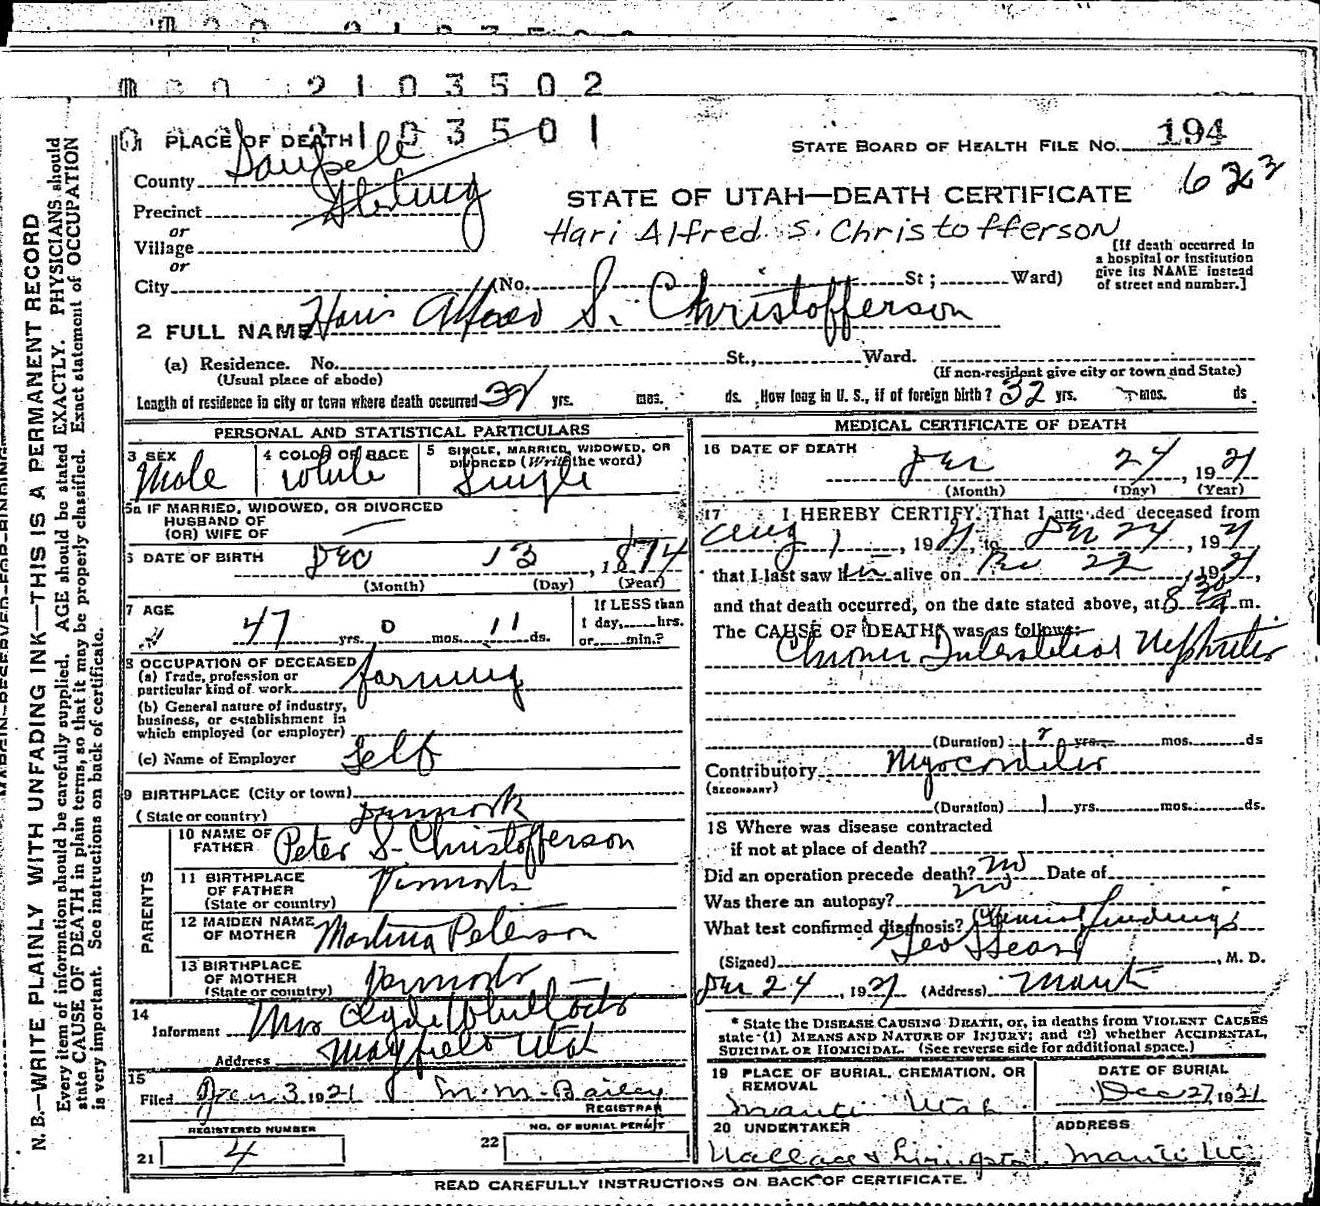 2103502
2103501
1 PLACE OF DEATH
STATE BOARD OF HEALTH FILE No. 194
County Sanpete
623
Precinct Sterling
STATE OF UTAH—DEATH CERTIFICATE
or
Village
Hari Alfred S. Christofferson
or
[If death occurred in
a hospital or institution
give its NAME instead
of street and number.]
City No. St; Ward)
2 FULL NAME Haris Alfred S. Christofferson
(a) Residence. No. St., Ward.
(Usual place of abode)
(If non-resident give city or town and State)
Length of residence in city or town where death occurred 32 yrs. mos. ds. How long in U. S., if of foreign birth? 32 yrs. mos. ds
PERSONAL AND STATISTICAL PARTICULARS
3 SEX
Male
4 COLOR OR RACE
White
5 SINGLE, MARRIED, WIDOWED, OR
DIVORCED (Write the word)
Single
5a IF MARRIED, WIDOWED, OR DIVORCED
HUSBAND OF
(OR) WIFE OF
6 DATE OF BIRTH Dec 13, 1874
(Month) (Day) (Year)
7 AGE
47 yrs. 0 mos. 11 ds.
If LESS than
1 day, hrs.
or min.?
8 OCCUPATION OF DECEASED
(a) Trade, profession or
particular kind of work farming
(b) General nature of industry,
business, or establishment in
which employed (or employer)
(c) Name of Employer Self
9 BIRTHPLACE (City or town)
(State or country) Denmark
PARENTS
10 NAME OF
FATHER Peter S. Christofferson
11 BIRTHPLACE
OF FATHER
(State or country) Denmark
12 MAIDEN NAME
OF MOTHER Martina Peterson
13 BIRTHPLACE
OF MOTHER
(State or country) Denmark
14
Informent Mrs Clyde Whitlock
Address Mayfield Utah
15
Filed Jan 3 1921 M. M. Bailey
REGISTRAR
REGISTERED NUMBER
21 4
NO. OF BURIAL PERMIT
22
MEDICAL CERTIFICATE OF DEATH
16 DATE OF DEATH
Dec 24, 1921
(Month) (Day) (Year)
17 I HEREBY CERTIFY, That I attended deceased from
Aug 1, 1921, to Dec 24, 1921
that I last saw him alive on Dec 22, 1921,
and that death occurred, on the date stated above, at 8 30 a m.
The CAUSE OF DEATH was as follows:
Chronic Interstitial Nephritis
(Duration) yrs. mos. ds
Contributory Myocarditis
(SECONDARY)
(Duration) 1 yrs. mos. ds.
18 Where was disease contracted
if not at place of death?
Did an operation precede death? no Date of
Was there an autopsy? no
What test confirmed diagnosis? Clinical findings
(Signed) Geo Sears, M. D.
Dec 24, 1921 (Address) Manti
* State the DISEASE CAUSING DEATH, or, in deaths from VIOLENT CAUSES
state (1) MEANS AND NATURE OF INJURY; and (2) whether ACCIDENTAL,
SUICIDAL OR HOMICIDAL. (See reverse side for additional space.)
19 PLACE OF BURIAL, CREMATION, OR
REMOVAL
Manti Utah
DATE OF BURIAL
Dec 27, 1921
20 UNDERTAKER
Wallace & Livingston
ADDRESS
Manti Ut.
READ CAREFULLY INSTRUCTIONS ON BACK OF CERTIFICATE.
MARGIN RESERVED FOR BINDING
N. B.—WRITE PLAINLY WITH UNFADING INK—THIS IS A PERMANENT RECORD
Every item of information should be carefully supplied. AGE should be stated EXACTLY. PHYSICIANS should
state CAUSE OF DEATH in plain terms, so that it may be properly classified. Exact statement of OCCUPATION
is very important. See instructions on back of certificate.